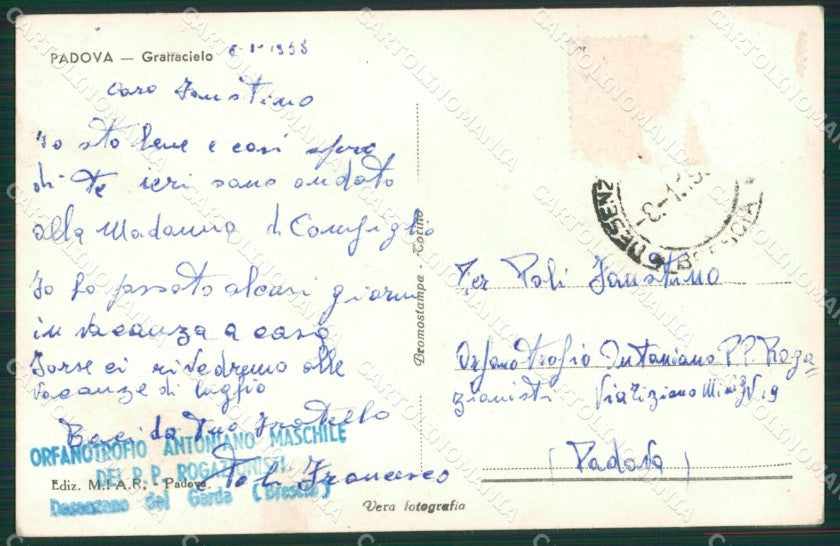 PADOVA — Grattacielo 6-1-1958
Caro Faustino
Io sto bene e così spero
di Te ieri sono andato
alla Madonna di Comfiglio
Io ho passato alcuni giorni
in vacanza a casa
Forse ci rivedremo alle
vacanze di luglio
Baci da Tuo Fratello
Poli Francesco
ORFANOTROFIO ANTONIANO MASCHILE
DEI P.P. ROGAZIONISTI
Desenzano del Garda (Brescia)
Ediz. M.I.A.R. - Padova
Vera fotografia
Bromostampa - Torino
DESENZ
BRESCIA
Per Poli Faustino
Orfanotrofio Antoniano P.P. Roga=
zionisti Via Tiziano Minio 19
(Padova)
CARTOLINOMANIA